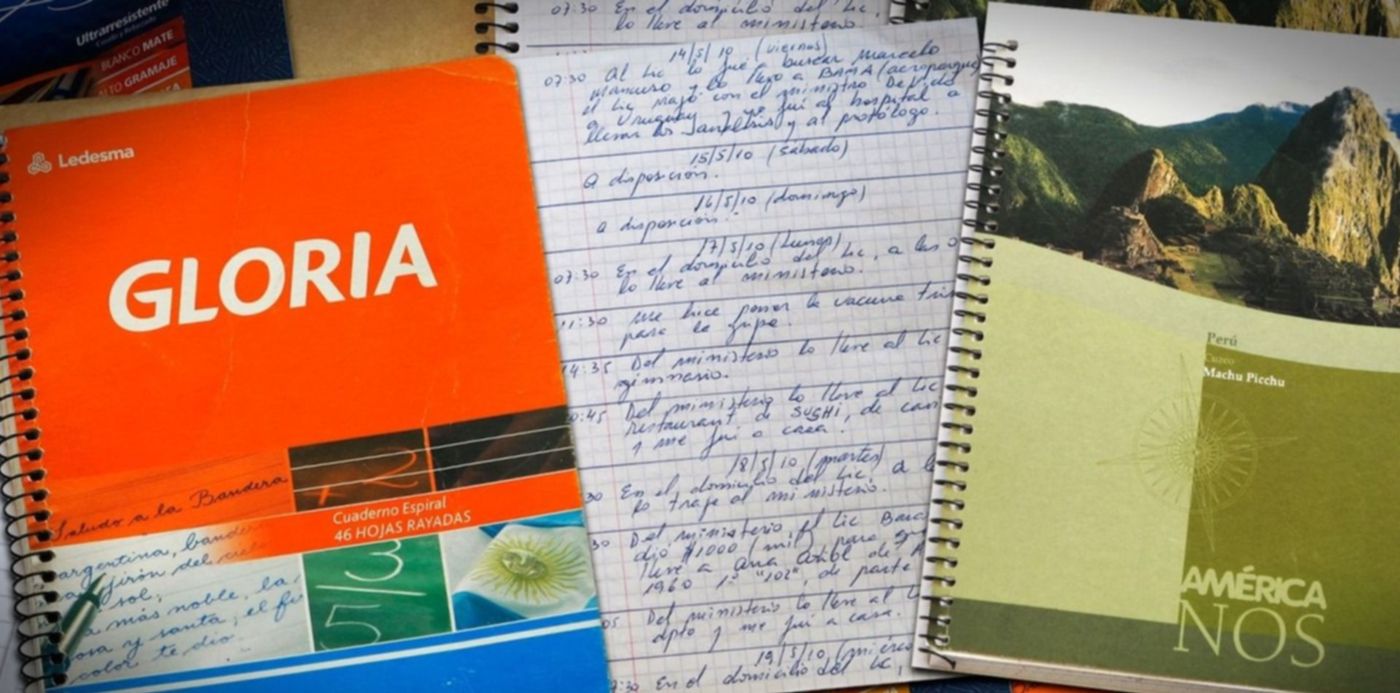 Ultrarresistente
BLANCO MATE
ALTO GRAMAJE
Ledesma
GLORIA
Saludo a la Bandera
argentina, bandera
jirón del cielo
sol;
más noble, la
y santa, el
color te dio.
Cuaderno Espiral
46 HOJAS RAYADAS
2
3
5
07:30 En el domicilio del Lic,
lo lleve al ministerio.
14/5/10 (viernes)
07:30 Al Lic lo fué a buscar Marcelo
y lo llevo a BAMA (aeroparque)
el Lic viajó con el ministro De Vido
a Uruguay y yo fuí al hospital a
llevar los analisis y al protólogo.
15/5/10 (sabado)
A disposición.
16/5/10 (domingo)
a disposición.
17/5/10 (Lunes)
07:30 En el domicilio del Lic, a las
lo lleve al ministerio.
11:30 me hice poner la vacuna
para la gripe.
14:35 Del ministerio lo lleve al Lic
gimnasio.
0:45 Del ministerio lo lleve al Lic
restaurant de SUSHI, de
y me fui a casa.
18/5/10 (martes)
30 En el domicilio del Lic, a
lo traje al ministerio.
30 Del ministerio, el Lic
dió $1000 (mil) para
lleve a
1960 1º "102", de parte
05 Del ministerio lo lleve al
dpto y me fui a casa.
19/5/10
7:30 En el domicilio del Lic,
Perú
Cuzco
Machu Picchu
AMÉRICA
NOS